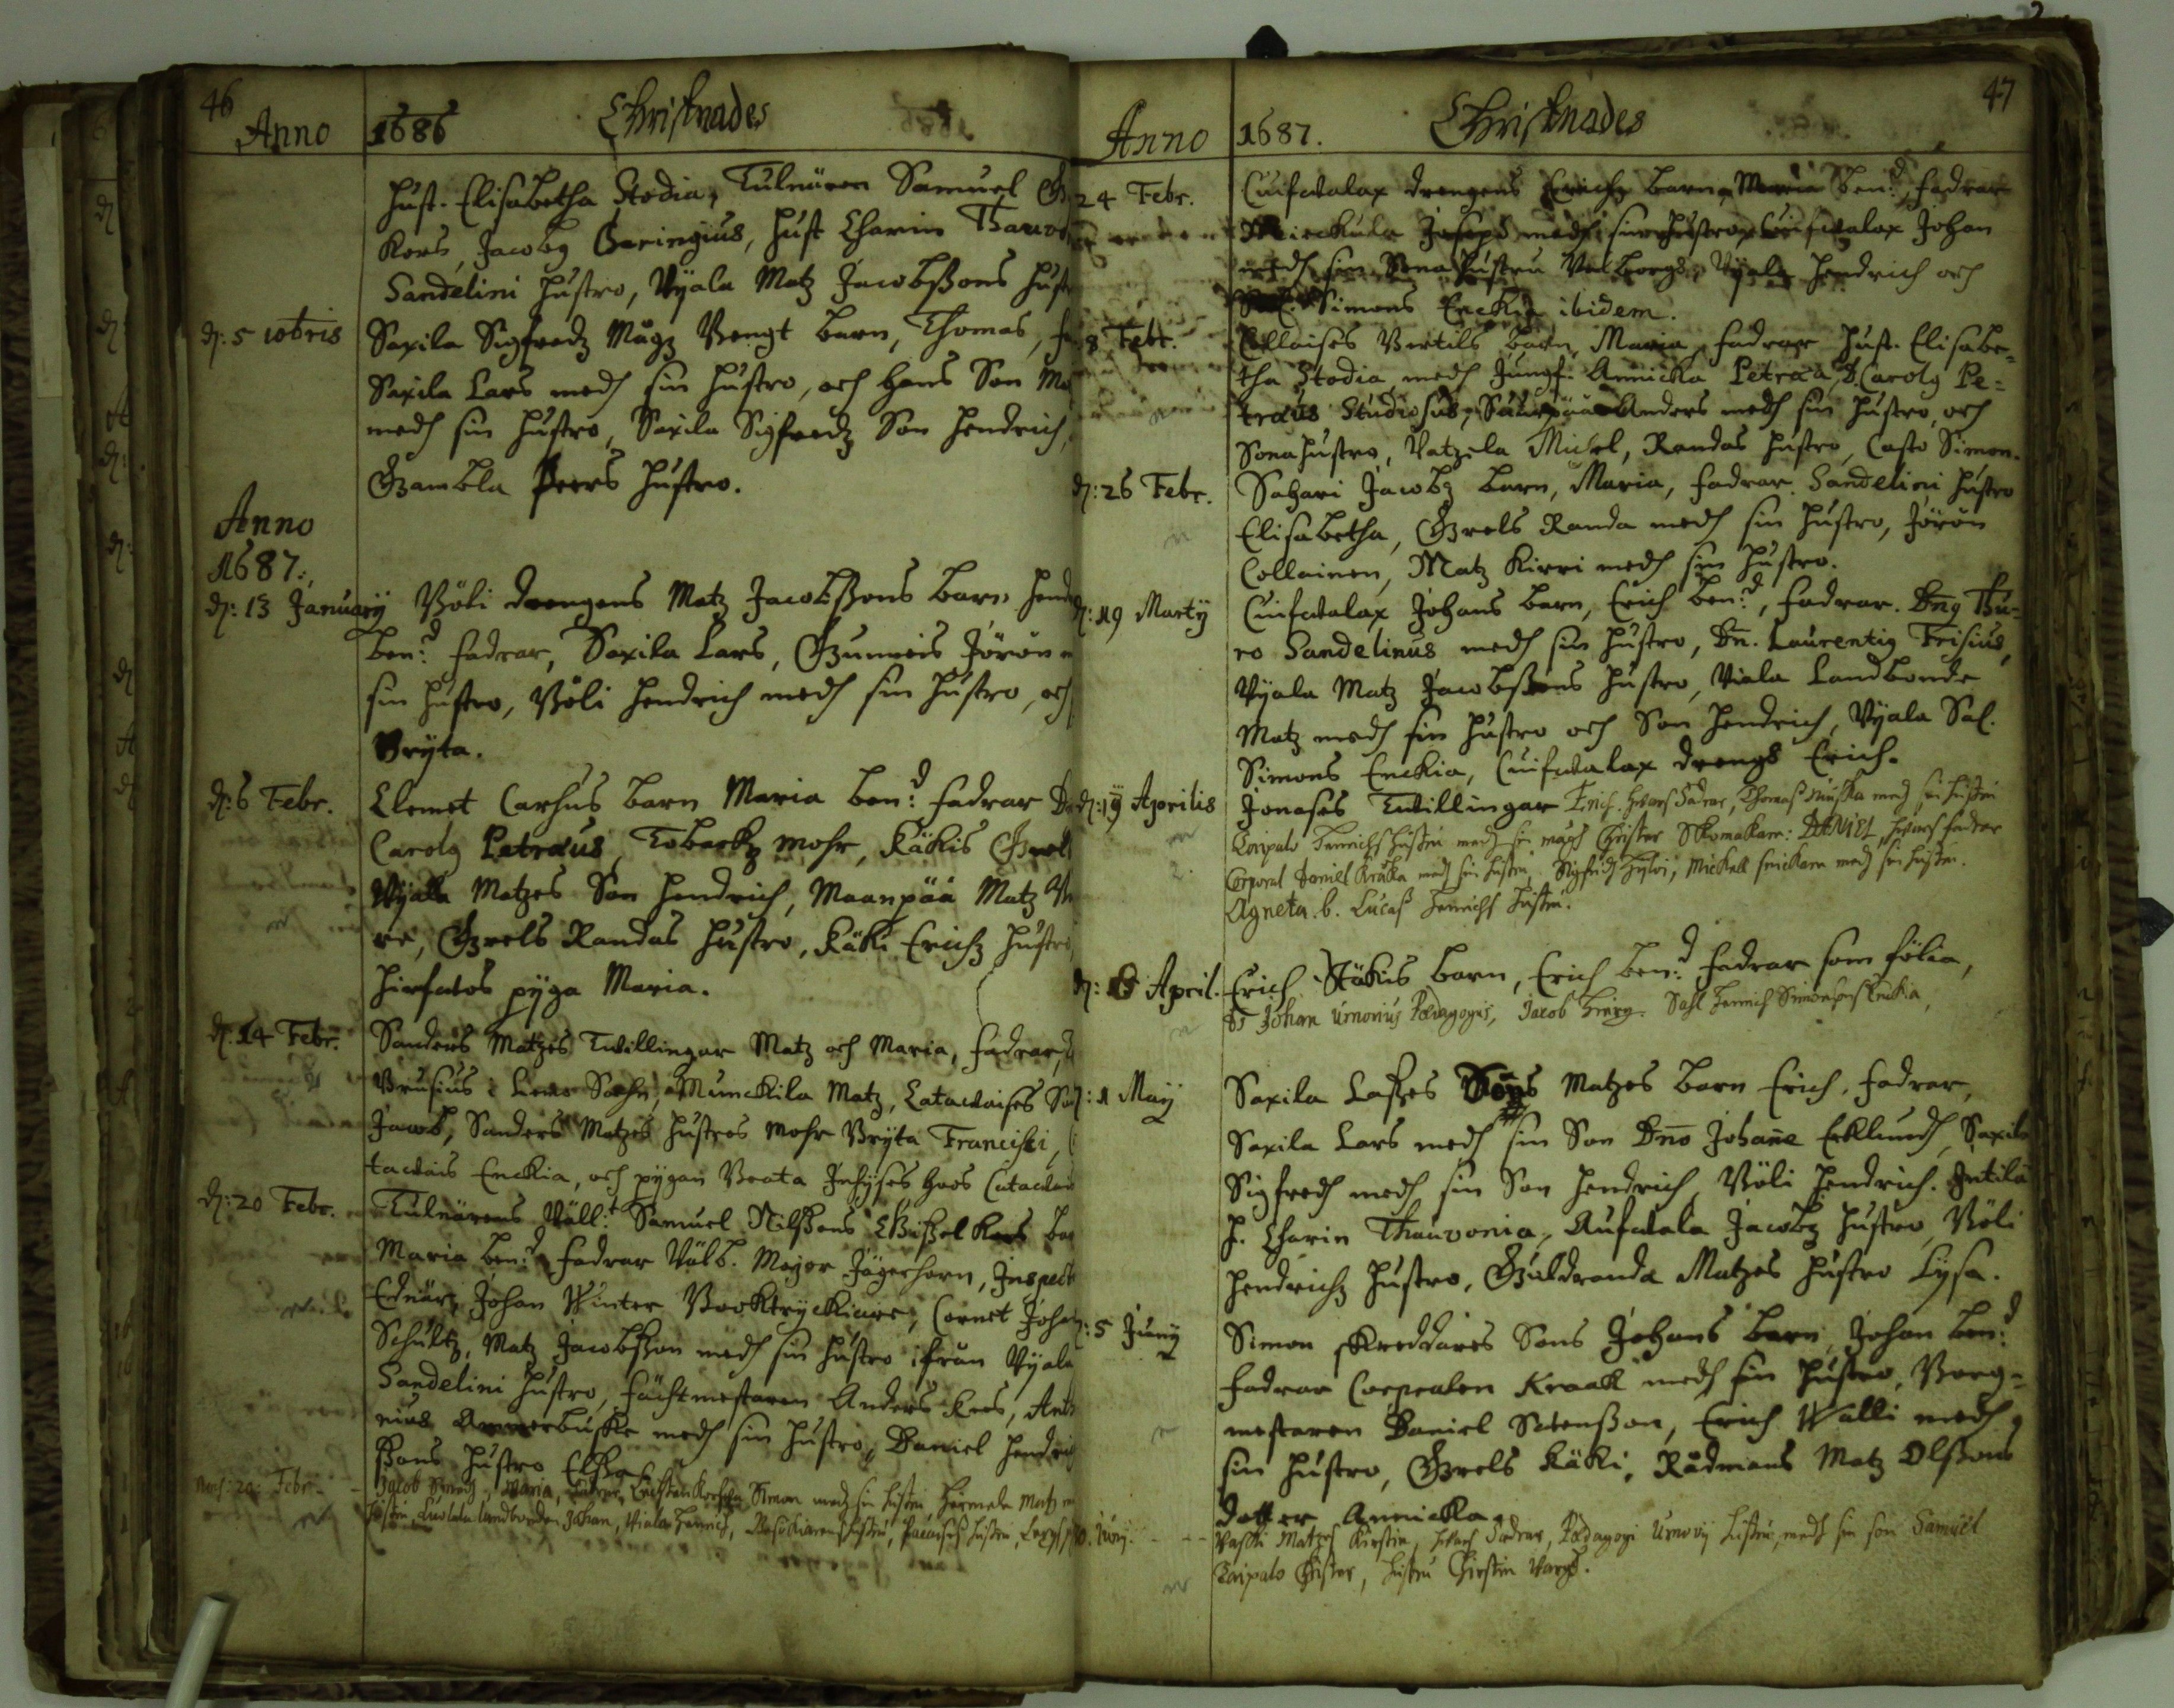 46
Anno 1686 Christnades
hust. Elisabetha Stodia, Tulnären Samuel
Kors, Jacobg Garingius, hust Charin Thauvo
Sandelini hustro, Vÿala Matz Jacobßons hust
dn: 5 10bris Saxila Sigfredz Mågz Bengt barn, Thomas, fa
Saxila Lars medh sin hustro, och hans Son Ma
medh sin hustro, Saxila Sigfredz Son Hendrich,
Gambla Peers hustro.
Anno
1687.
dn: 13 Januarÿ Völi drengens Matz Jacobßons barn Hend
ben:d fadrar, Saxila Lars, Gunneis Jöran
sin hustro, Völi Hendrich medh sin hustro, och
Brÿta.
dn: 6 Febr. Clemet Carhus barn Maria ben:d fadrar
Carolg Petræus, Tobackz mohr, Käkis Grels
Vÿala Matzes Son Hendrich, Maanpää Matz
re, Grels Randas hustro, Käki Erichz hustro,
pÿga Maria.
dn: 14 Febr. Sanders Matzes Twillingar Matz och Maria, fadrar,
Brusius i Lemo Sochn, Munckila Matz, Catawaises
Jacob, Sanders Matzes hustros mohr Brÿta Francisci,
tawais Enckia, och pÿgan Beata Inhÿses hoos Catawais
dn: 20 Febr. Tulnärens Wäll:t Samuel Nilßons Kors bar
Maria ben:d fadrar Välb. Major Jägerhorn, Inspect
Ednär, Johan Winter Booktrÿckiare, Cornet Joha
Schultz, Matz Jacobßon medh sin hustro ifrån Vÿala
Sandelini hustro, fächtmestaren Anders Kers, Anto
nius medh sin hustro, Daniel Hendrich
ßons hustro Elßa.
20: Febr. Jacob Maria, Simon medh sin hustru Matz
hustru, landbonden Johan, Viala Henrich,
47
Anno 1687. Christnades
24 Febr. Cuifwalax drengens Erichz barn, Maria ben:d, fadrar
Joseph medh sin hustro, Cuifwalax Johan
medh sin Sona hustru Valborg, Vÿala Hendrich och
Sal. Simons Enckia ibidem.
8 Febr. Collaises Bertils barn, Maria, fadrar hust. Elisabe=
tha Stodia, medh Jungf. Annicka Petræa, D. Carolg Pe=
træus Studiosus, Anders medh sin hustro, och
Sonahustro, Vatzela Michel, Randas hustro, Casto Simon.
dn: 26 Febr. Sahari Jacobz barn, Maria, fadrar. Sandelini hustro
Elisabetha, Grels Randa medh sin hustro, Jöran
Collainen, Matz Kirri medh sin hustro.
dn: 19 Martÿ Cuifwalax Johans barn, Erich ben:d, fadrar. Dng Thu=
ro Sandelinus medh sin hustro, Dn. Laurentig Frisius,
Vÿala Matz Jacobßons hustro, Viala Landbonde
Matz medh sin hustro och Son Hendrich, Vÿala Sal.
Simons Enckia, Cuifwalax drengs Erich.
dn: 19 Aprilis Jonases Twillingar Erich. hwars Fadrar, Thomaß Muska medh sin hustru
Koipalo Henrichs hustru medh sin mågh Christer Skomakare: DANIEL, hwars fadrar
Corporal Daniel Kråka medh sin hustru, Sigfridh Michell snickare medh sin hustru.
Agneta. b. Lucaß Henrichs hustru.
dn: 18 April. Erich Stäkis barn, Erich ben:d fadrar som fölia,
Dn Johan Urnovius Pædagogus, Jacob Sahl Henrich Simonßons Enckia,
dn: 1 Maÿ Saxila Laßes Sons Matzes barn Erich, fadrar,
Saxila Lars medh sin Son Dno Johane Ecklundh, Saxila
Sigfredh medh sin Son Hendrich, Völi Hendrich. Jntila
h. Charin Thauvonia, Aufwala Jacobz hustro, Völi
Hendrichz hustro, Guldranda Matzes hustro Lÿsa.
5 Junÿ Simon Skreddares Sons Johans barn, Johan ben:d
fadrar Corpralen Kraak medh sin hustro, Borg=
mestaren Daniel Stenßon, Erich Walli medh
sin hustro, Grels Käki, Rådmans Matz Olßons
dotter Annicka.
10. Junÿ. Paski Matzes Kirstin, hwars Fadrar, Pædagogi Urnovij hustru, medh sin son Samuel
Koipalo Christer, hustru Chirstin